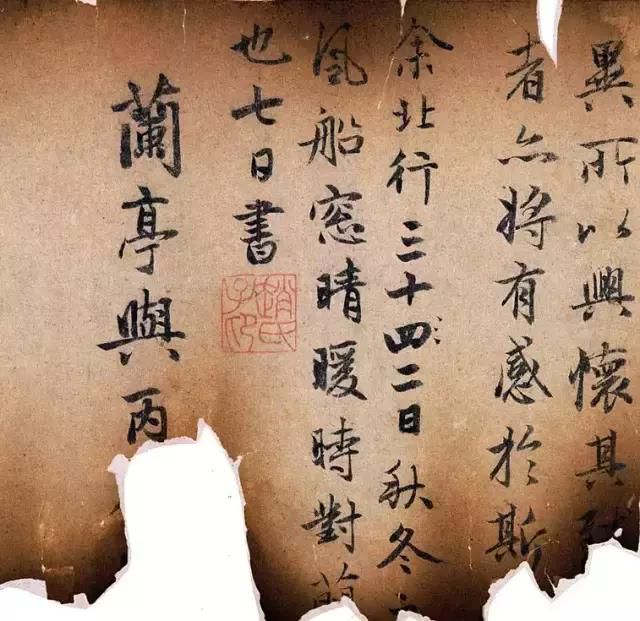 異所以興懷其致
者亦將有感於斯
余北行三十四二日秋冬
風船窓晴暖時對蘭
也七日書
趙氏子昂
蘭亭與丙